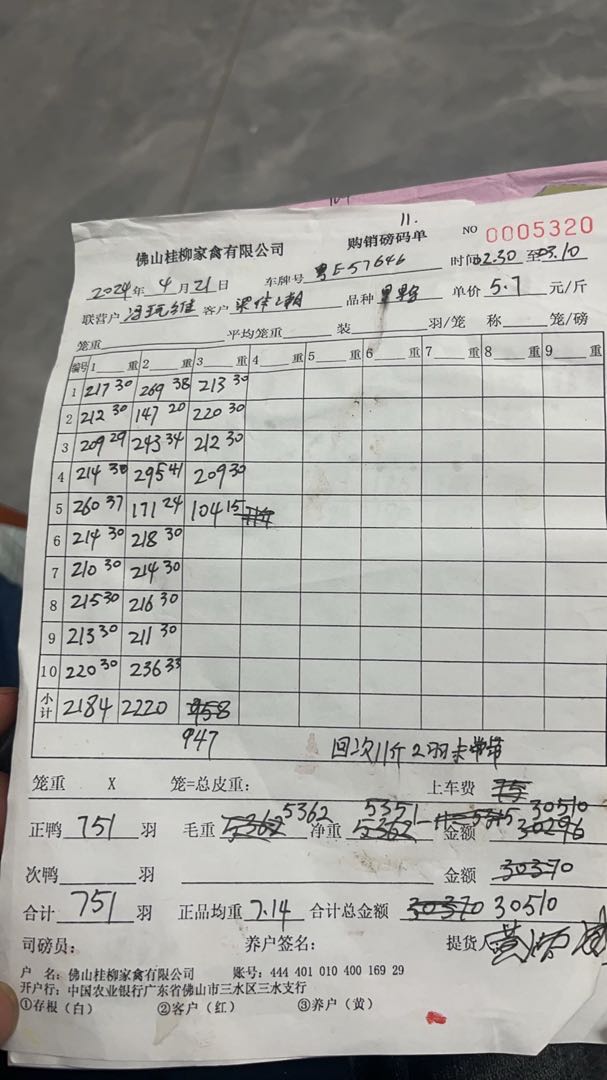 11.
佛山桂柳家禽有限公司 购销磅码单 NO 0005320
2024年 4月21日 车牌号 粤E57646 时间02.30 至03.10
联营户 客户 品种 单价 5.7 元/斤
笼重 平均笼重 装 羽/笼 称 笼/磅
编号 1 重 2 重 3 重 4 重 5 重 6 重 7 重 8 重 9 重
1 217 30 269 38 213 30
2 212 30 147 20 220 30
3 209 29 243 34 212 30
4 214 30 295 41 209 30
5 260 37 171 24 104 15
6 214 30 218 30
7 210 30 214 30
8 215 30 216 30
9 213 30 211 30
10 220 30 236 33
小计 2184 2220 958
947 回次11斤2羽未带节
笼重 X 笼=总皮重: 上车费 75
正鸭 751 羽 毛重 5362 5362 净重 5362 5351 金额 30296 30510
次鸭 羽 金额 30370
合计 751 羽 正品均重 7.14 合计总金额 30370 30510
司磅员: 养户签名: 提货人
户 名: 佛山桂柳家禽有限公司 账号: 444 401 010 400 169 29
开户行: 中国农业银行广东省佛山市三水区三水支行
①存根(白) ②客户(红) ③养户(黄)